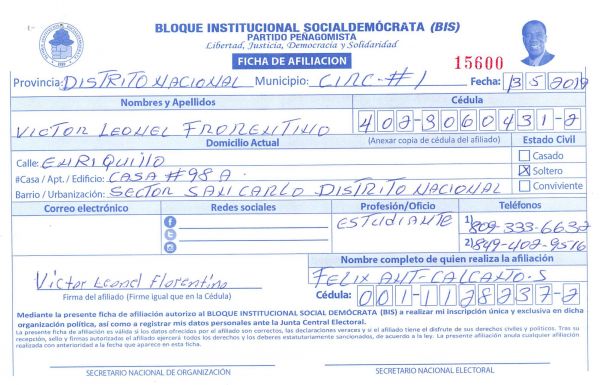 BLOQUE INSTITUCIONAL SOCIALDEMÓCRATA (BIS)
PARTIDO PEÑAGOMISTA
Libertad, Justicia, Democracia y Solidaridad
FICHA DE AFILIACION
15600
Provincia: DISTRITO NACIONAL Municipio: CIRC-#1 Fecha: 13 5 2019
Nombres y Apellidos Cédula
VICTOR LEONEL FLORENTINO 402-3060431-2
Domicilio Actual (Anexar copia de cédula del afiliado) Estado Civil
Calle: ENRIQUILLO Casado
#Casa / Apt. / Edificio: CASA #98 A. X Soltero
Barrio / Urbanización: SECTOR SAN CARLO DISTRITO NACIONAL Conviviente
Correo electrónico Redes sociales Profesión/Oficio Teléfonos
ESTUDIANTE 1) 809-333-6632
2) 849-402-9576
Nombre completo de quien realiza la afiliación
Victor Leonel Florentino FELIX ANT-CALCAÑO-S
Firma del afiliado (Firme igual que en la Cédula) Cédula: 001-1128237-2
Mediante la presente ficha de afiliación autorizo al BLOQUE INSTITUCIONAL SOCIAL DEMÓCRATA (BIS) a realizar mi inscripción única y exclusiva en dicha
organización política, así como a registrar mis datos personales ante la Junta Central Electoral.
La presente ficha de afiliación es válida si los datos ofrecidos por el afiliado son correctos, las declaraciones veraces y si el afiliado tiene el disfrute de sus derechos civiles y políticos. Tras su
recepción, sello y firmas autorizadas el afiliado ejercerá todos los derechos y los deberes estatutariamente consignados, de acuerdo a la ley. La presente afiliación anula cualquier afiliación
realizada con anterioridad a la fecha que aparece en esta ficha.
SECRETARIO NACIONAL DE ORGANIZACIÓN SECRETARIO NACIONAL ELECTORAL